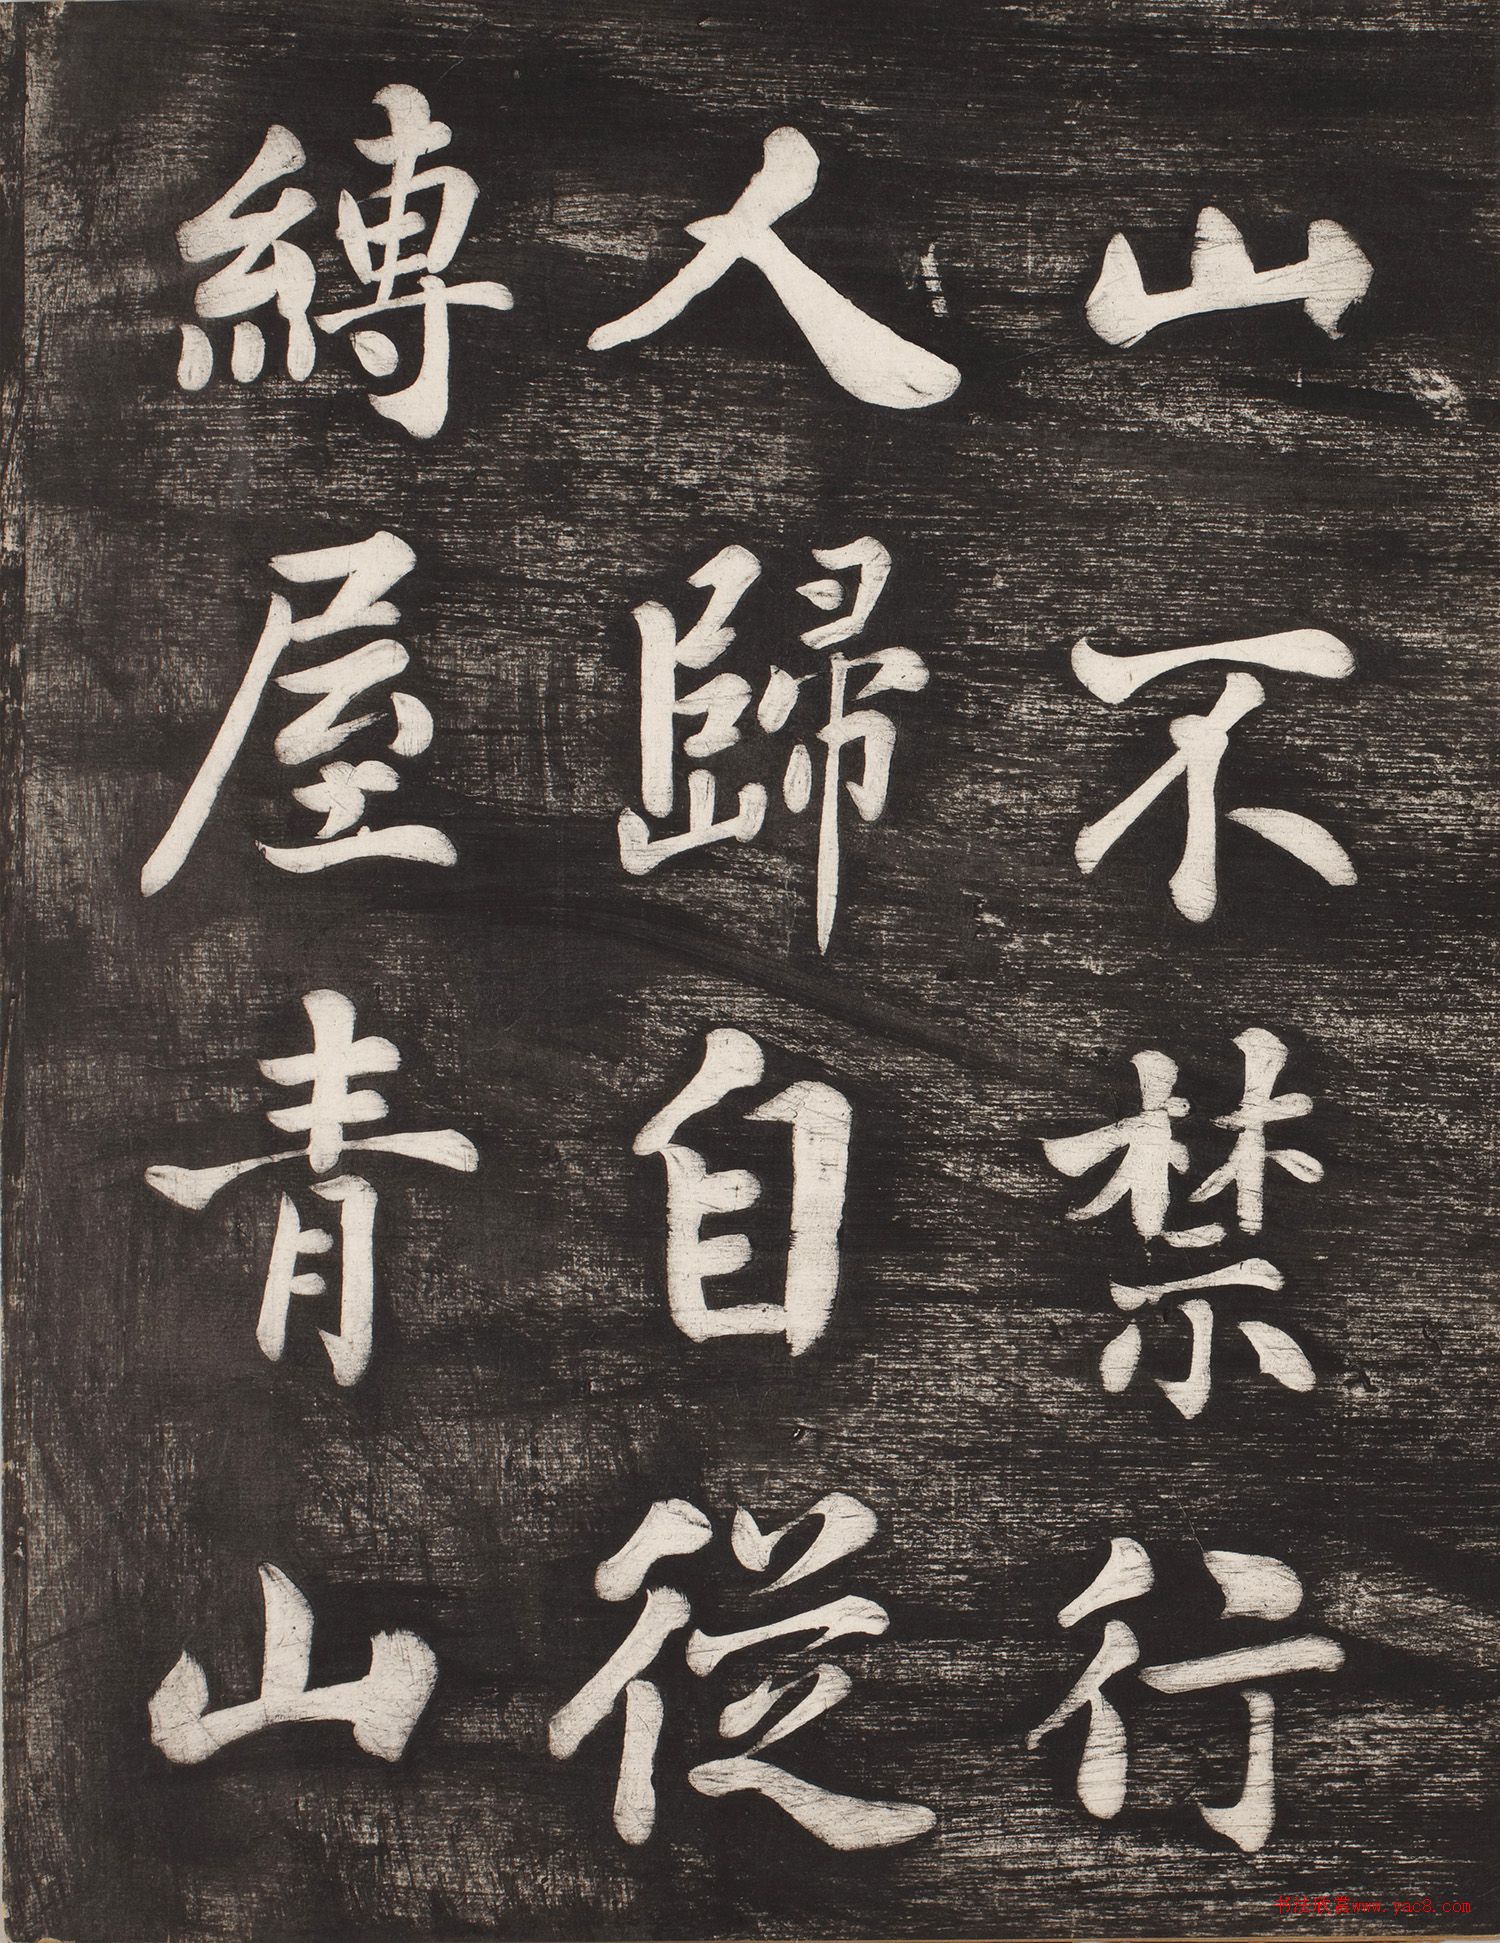 山不禁行
人歸自從
縛屋青山
书法欣赏www.yac8.com